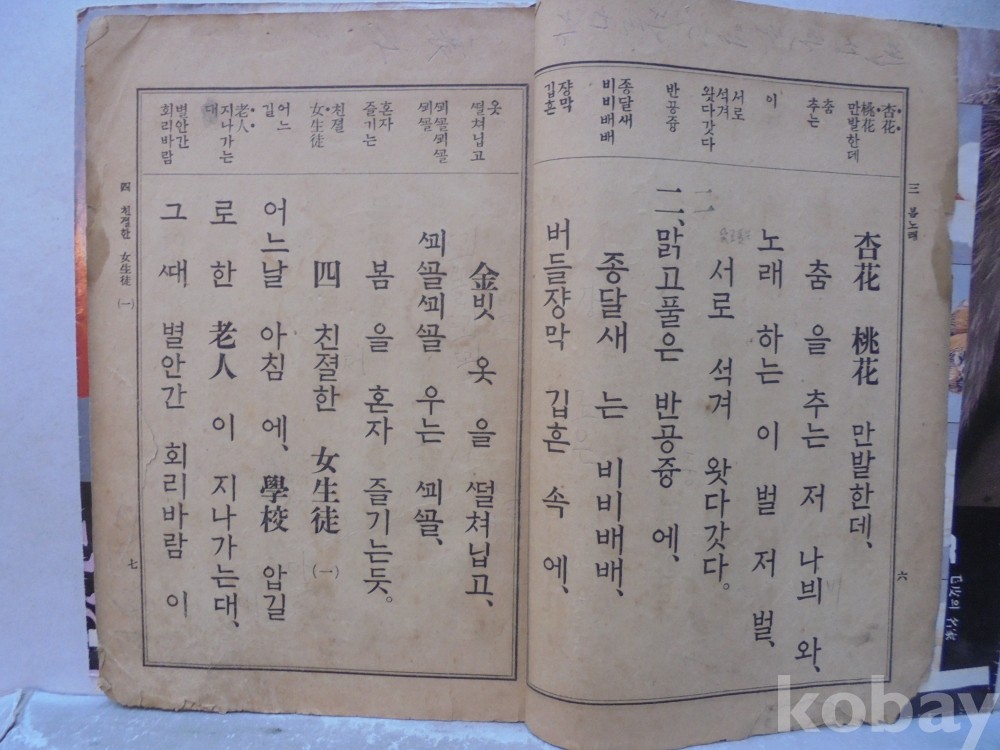 三 봄노래
杏花
桃花
만발한데
춤
추는
이
서로
석겨
왓다갓다
반공즁
종달새
비비배배
쟝막
깁흔
杏花 桃花 만발한데、
춤을 추는 저 나븨와、
노래하는 이 벌 저 벌、
서로 석겨 왓다갓다。
二、맑고 풀은 반공즁에、
종달새는 비비배배、
버들쟝막 깁흔 속에、
六
옷
ᄯᅥᆯ쳐닙고
ᄭᅬᄭᅩᆯᄭᅬᄭᅩᆯ
ᄭᅬᄭᅩᆯ
혼자
즐기는
친졀
女生徒
어느
길
老人
지나가는
대
별안간
회리바람
金빗 옷을 ᄯᅥᆯ쳐닙고、
ᄭᅬᄭᅩᆯᄭᅬᄭᅩᆯ 우는 ᄭᅬᄭᅩᆯ、
봄을 혼자 즐기는듯。
四 친졀한 女生徒 (一)
어느날 아침에、學校 압길
로 한 老人이 지나가는대、
그ᄯᅢ 별안간 회리바람이
四 친졀한 女生徒 (一)
七
kobay